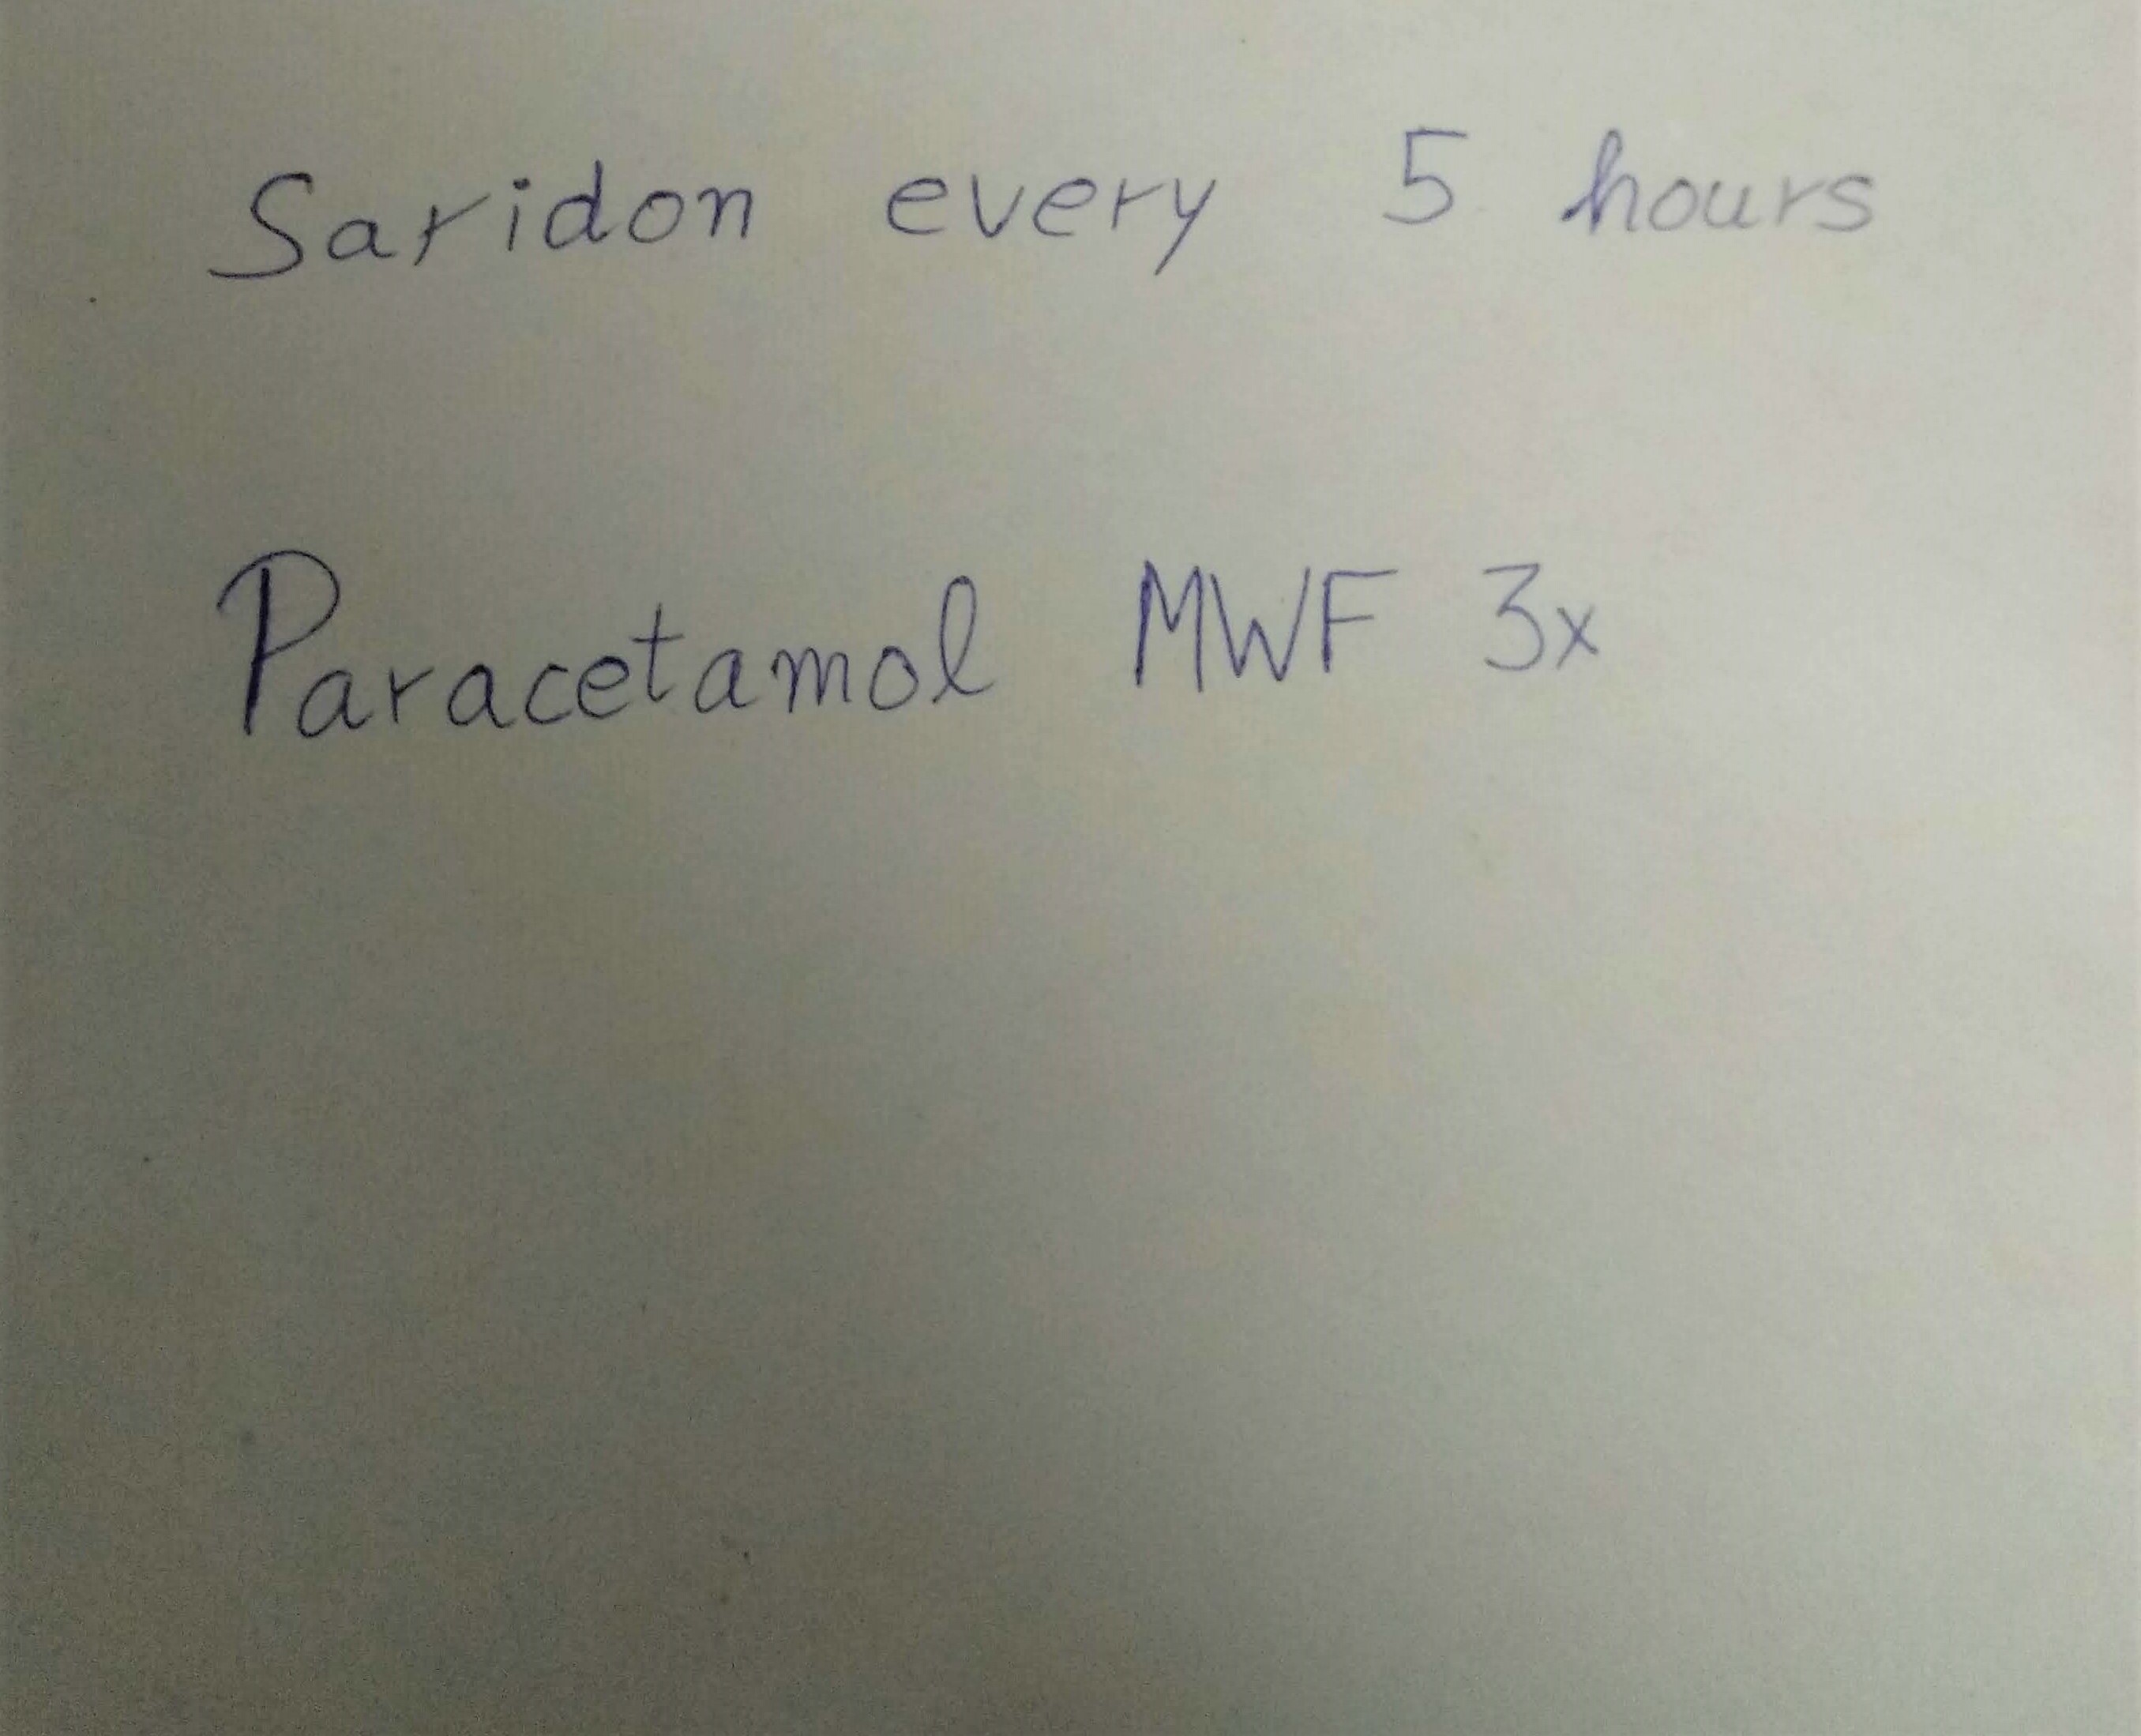 Saridon every 5 hours
Paracetamol MWF 3x